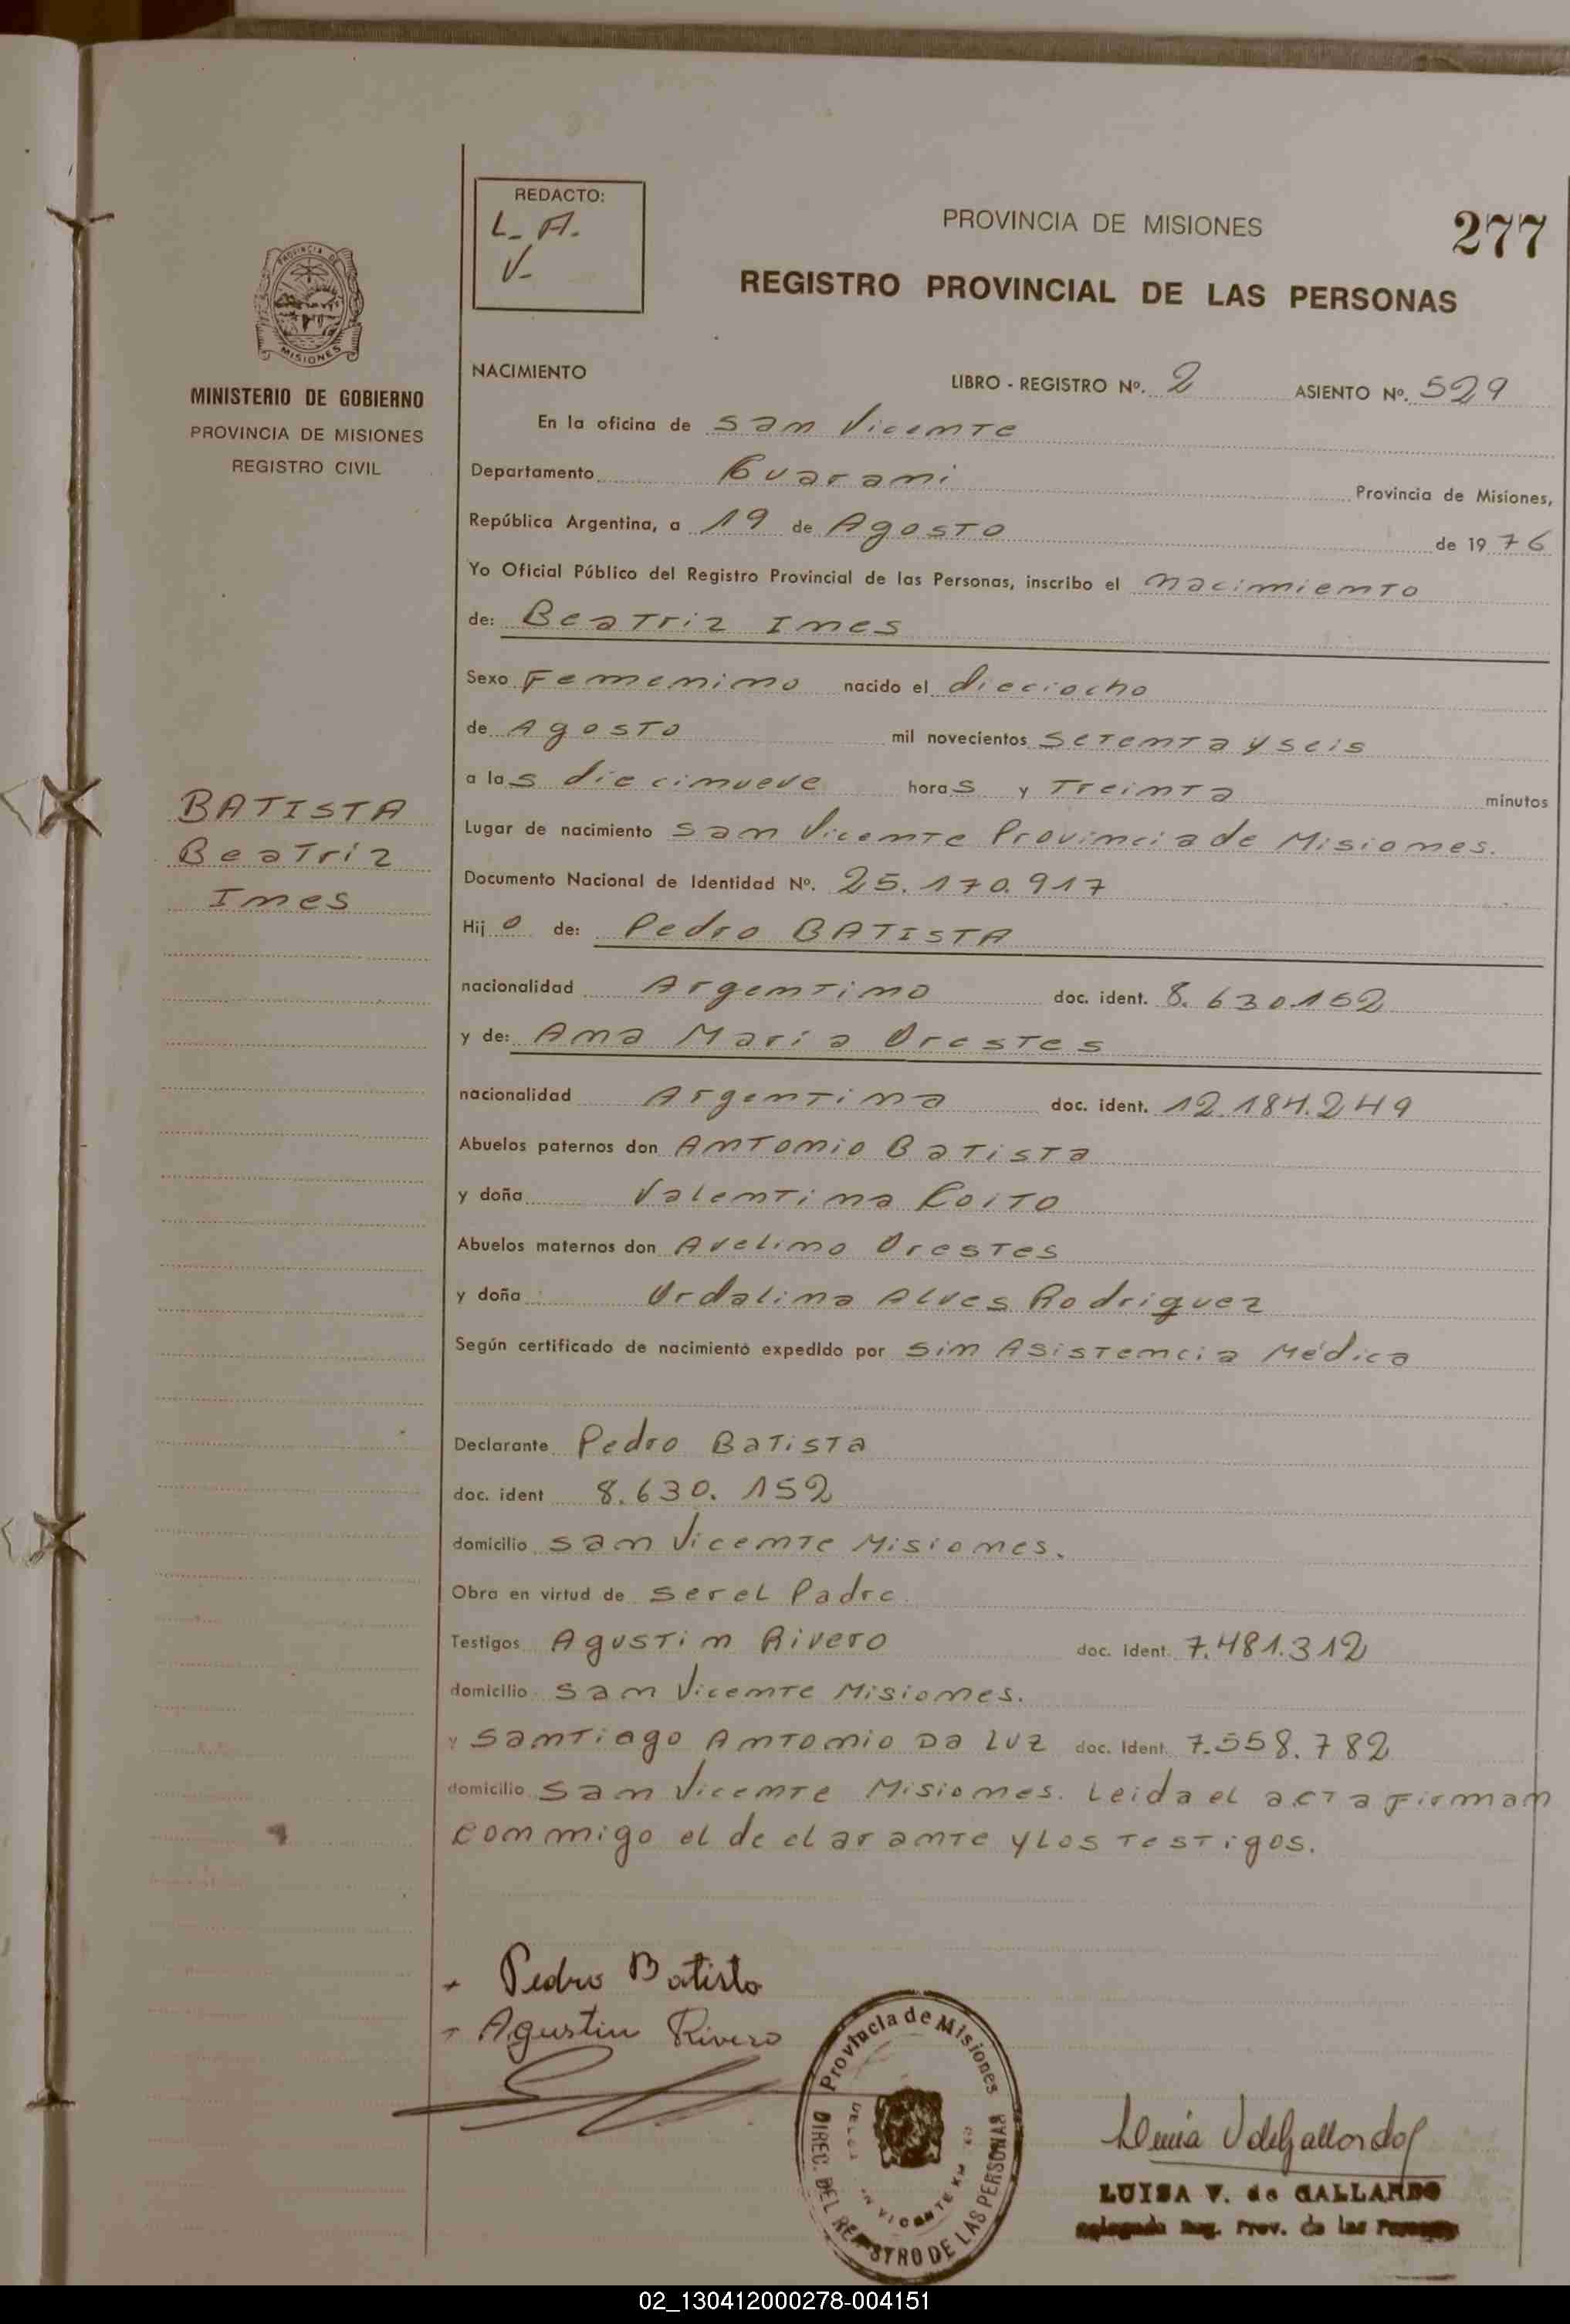 277
REDACTO:
L_ A.
V-
PROVINCIA DE MISIONES
REGISTRO PROVINCIAL DE LAS PERSONAS
PROVINCIA DE
MISIONES
MINISTERIO DE GOBIERNO
PROVINCIA DE MISIONES
REGISTRO CIVIL
BATISTA
Beatriz
Ines
NACIMIENTO LIBRO - REGISTRO Nº. 2 ASIENTO Nº. 529
En la oficina de San Vicente
Departamento Guarani Provincia de Misiones,
República Argentina, a 19 de Agosto de 1976
Yo Oficial Público del Registro Provincial de las Personas, inscribo el nacimiento
de: Beatriz Ines
Sexo Femenino nacido el dieciocho
de Agosto mil novecientos setenta y seis
a las diecinueve horas y Treinta minutos
Lugar de nacimiento San Vicente Provincia de Misiones.
Documento Nacional de Identidad Nº. 25.170.917
Hijo de: Pedro BATISTA
nacionalidad Argentino doc. ident. 8.630.152
y de: Ana María Orestes
nacionalidad Argentina doc. ident. 12.184.249
Abuelos paternos don Antonio Batista
y doña Valentina Coito
Abuelos maternos don Avelino Orestes
y doña Ordalina Alves Rodriguez
Según certificado de nacimiento expedido por Sin Asistencia Médica
Declarante Pedro Batista
doc. ident 8.630.152
domicilio San Vicente Misiones.
Obra en virtud de ser el Padre.
Testigos Agustin Rivero doc. ident. 7.481.312
domicilio San Vicente Misiones.
y Santiago Antonio Da Luz doc. Ident. 7.558.782
domicilio San Vicente Misiones. Leida el acta firman
conmigo el declarante y los testigos.
Pedro Batista
Agustin Rivero
Provincia de Misiones
DIREC. DEL REGISTRO DE LAS PERSONAS
Luisa V de Gallardo
LUISA V. de GALLARDO
Delegada Reg. Prov. de las Personas
02_130412000278-004151